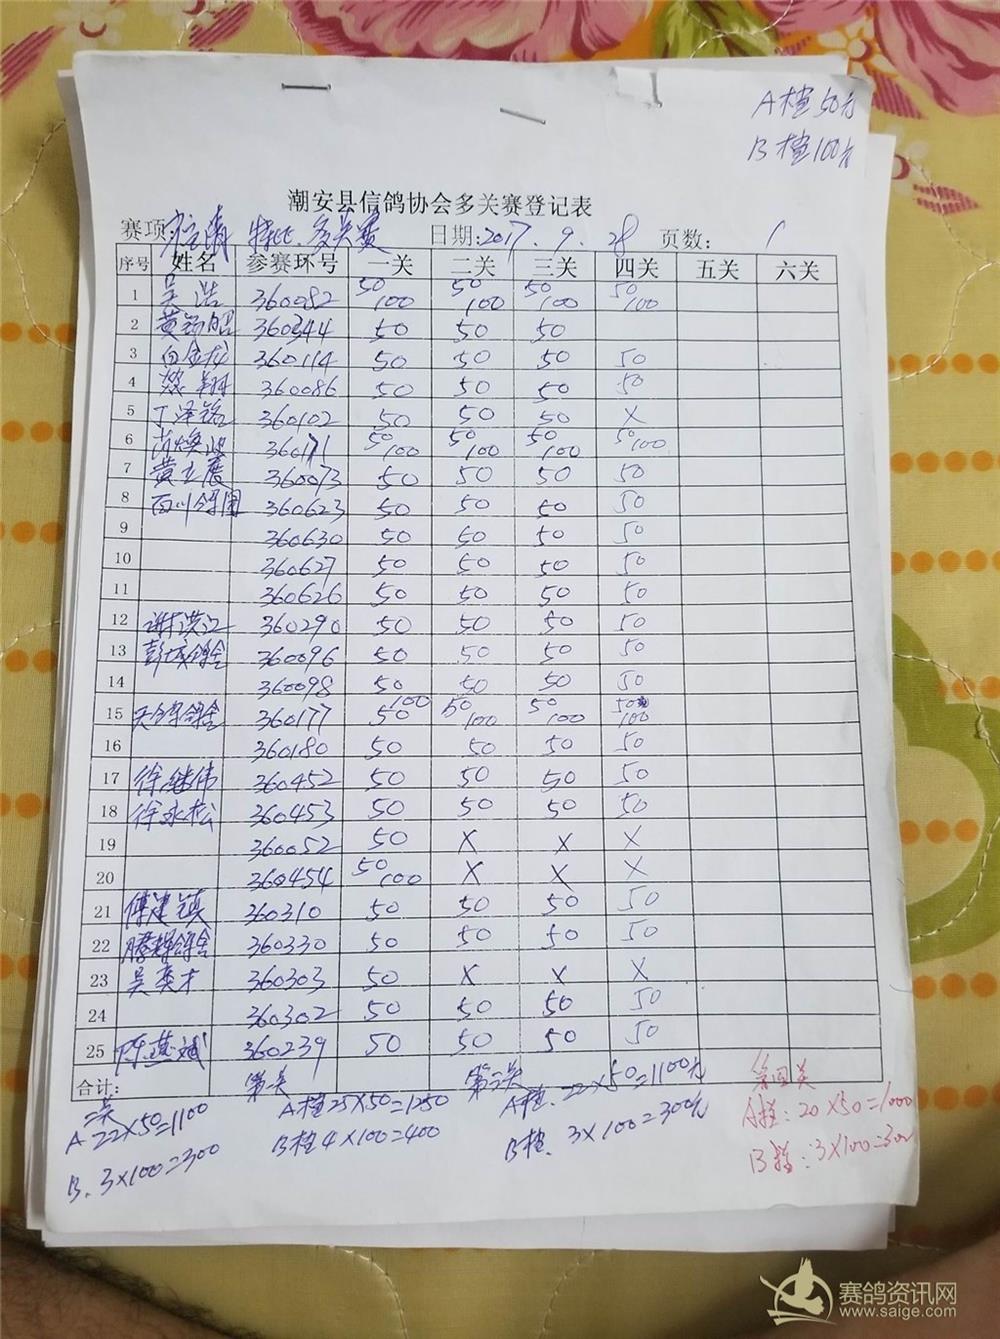 A档 50元
B档 100元
潮安县信鸽协会多关赛登记表
赛项: 特比.多关赛 日期:2017.9.28 页数: 1
序号 姓名 参赛环号 一关 二关 三关 四关 五关 六关
1 吴浩 360082 50 100 50 100 50 100 50 100
2 360344 50 50 50
3 360114 50 50 50 50
4 360086 50 50 50 50
5 丁泽铭 360102 50 50 50 X
6 360171 50 100 50 100 50 100 50 100
7 黄立展 360073 50 50 50 50
8 百川鸽园 360623 50 50 50 50
9 360630 50 50 50 50
10 360627 50 50 50 50
11 360626 50 50 50 50
12 谢洪江 360290 50 50 50 50
13 彭城鸽舍 360096 50 50 50 50
14 360098 50 50 50 50
15 鸽舍 360177 50 100 50 100 50 100 50 100
16 360180 50 50 50 50
17 徐继伟 360452 50 50 50 50
18 徐永松 360453 50 50 50 50
19 360052 50 X X X
20 360454 50 100 X X X
21 傅建镇 360310 50 50 50 50
22 腾辉鸽舍 360330 50 50 50 50
23 吴奕才 360303 50 X X X
24 360302 50 50 50 50
25 陈燕斌 360239 50 50 50 50
合计: 第一关 第三关 第四关
二关 A档 25×50=1250 A档. 22×50=1100元 A档: 20×50=1000
A 22×50=1100 B档 4×100=400 B档. 3×100=300元 B档: 3×100=300
B. 3×100=300
赛鸽资讯网
www.saige.com